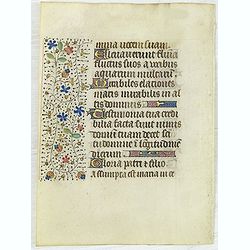 mina vocem suam.
Elevaverunt flumina
fluctus suos a vocibus
aquarum multarum.
Mirabiles elationes
maris mirabilis in al
tis dominus
Testimonia tua credi
bilia facta sunt nimis
domum tuam decet sci
tu domine i longitudine
dierum
Gloria patri et filio
Assumpta est maria in ce